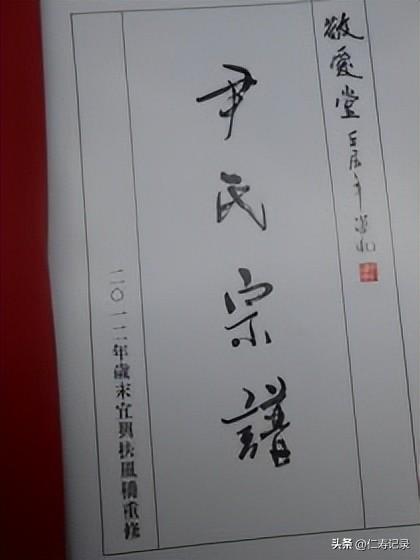 敬爱堂 壬辰年
尹氏宗譜
二〇一二年歲末宜興扶風橋重修
头条 @仁寿记录